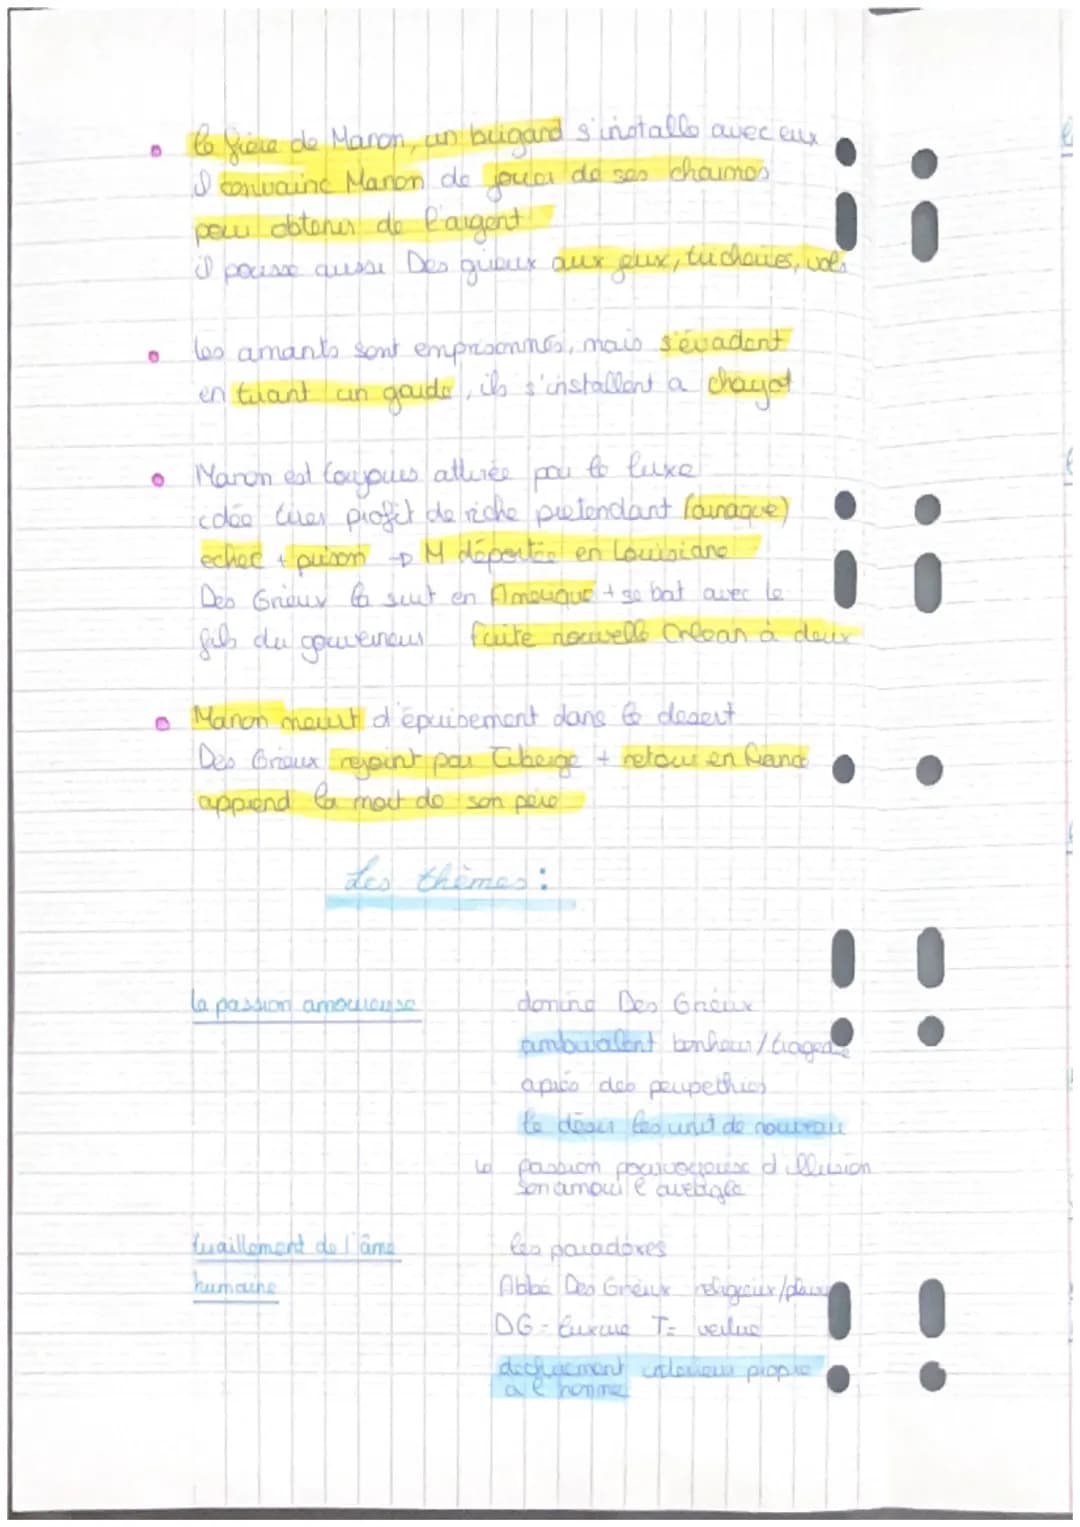 le frère de Manon, un brigand s'installe avec eux
il convainc Manon de jouer de ses charmes
pour obtenir de l'argent
il pousse aussi Des grieux aux jeux, tricheries, vols
les amants sont emprisonnés, mais s'évadent
en tuant un garde, ils s'installent a chayot
Manon est toujours attirée par le luxe
idée tirer profit de riche pretendant (arnaque)
echec + prison → M déportée en Louisiane
Des Grieux la suit en Amerique + se bat avec le
fils du gouverneur fuite nouvelle Orlean à deux
Manon meurt d'épuisement dans le desert
Des Grieux rejoint par Tiberge + retour en France
apprend la mort de son père
Les thèmes :
la passion amoureuse
domine Des Grieux
ambivalent bonheur/tragedie
après des peripethies
le désir les unit de nouveau
↳ passion pourvoyeuse d illusion
son amour l aveugle
tiraillement de l'âme
humaine
les paradoxes
Abbé Des Grieux religieux/
DG = luxure T= vertue
dechirement interieur propre
a l homme